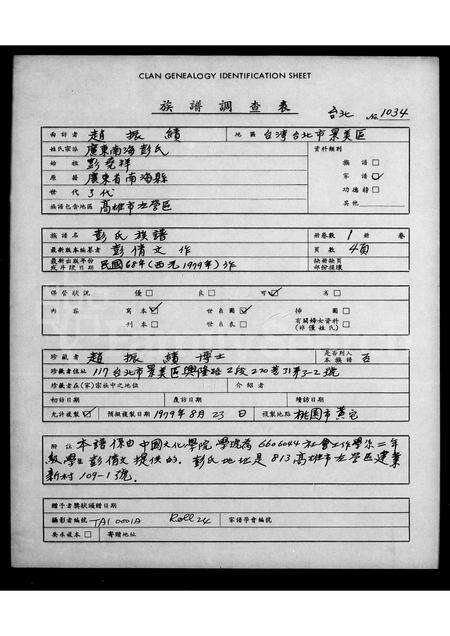 CLAN GENEALOGY IDENTIFICATION SHEET
族譜調查表 台北 No 1034
面訪者 趙振績 地區 台灣台北市景美區
姓氏宗派 廣東南海彭氏 資料類別
始祖 彭堯祥 族譜□
原籍 廣東省南海縣 家譜☑
世代 3代 功德榜□
族譜包含地區 高雄市左營區 其他
族譜名 彭氏族譜 冊卷數 1 冊 卷
最新版本編纂者 彭倩文 作 頁數 4頁
最新出版年份或年限日期 民國68年(西元1979年)作 缺冊缺頁部份複壞
保管狀況 優□ 良□ 可☑ 劣□
內容 寫本☑ 世系圖☑ 掃圖□
刊本□ 世系表□ 有關婦女資料(非僅姓氏)□
珍藏者 趙振績 博士 是否列入本族譜 否
珍藏者住址 117台北市景美區興隆路2段220巷31弄3-2號
珍藏者在(家)宗社中之地位 介紹者
初訪日期 產訪日期 續訪日期
允許複製☑ 預擬複製日期 1979年8月23日 複製地點 桃園市黃宅
附註 本譜係由中國文化學院,學號為6606044社會工作學系二年
級學生彭倩文提供的。彭氏地址是813高雄市左營區建業
新村109-1號。
贈予者獎狀頒贈日期
攝影者編號 TAI 0001A Roll 24 家譜學會編號
要求複本□ 寄贈地址